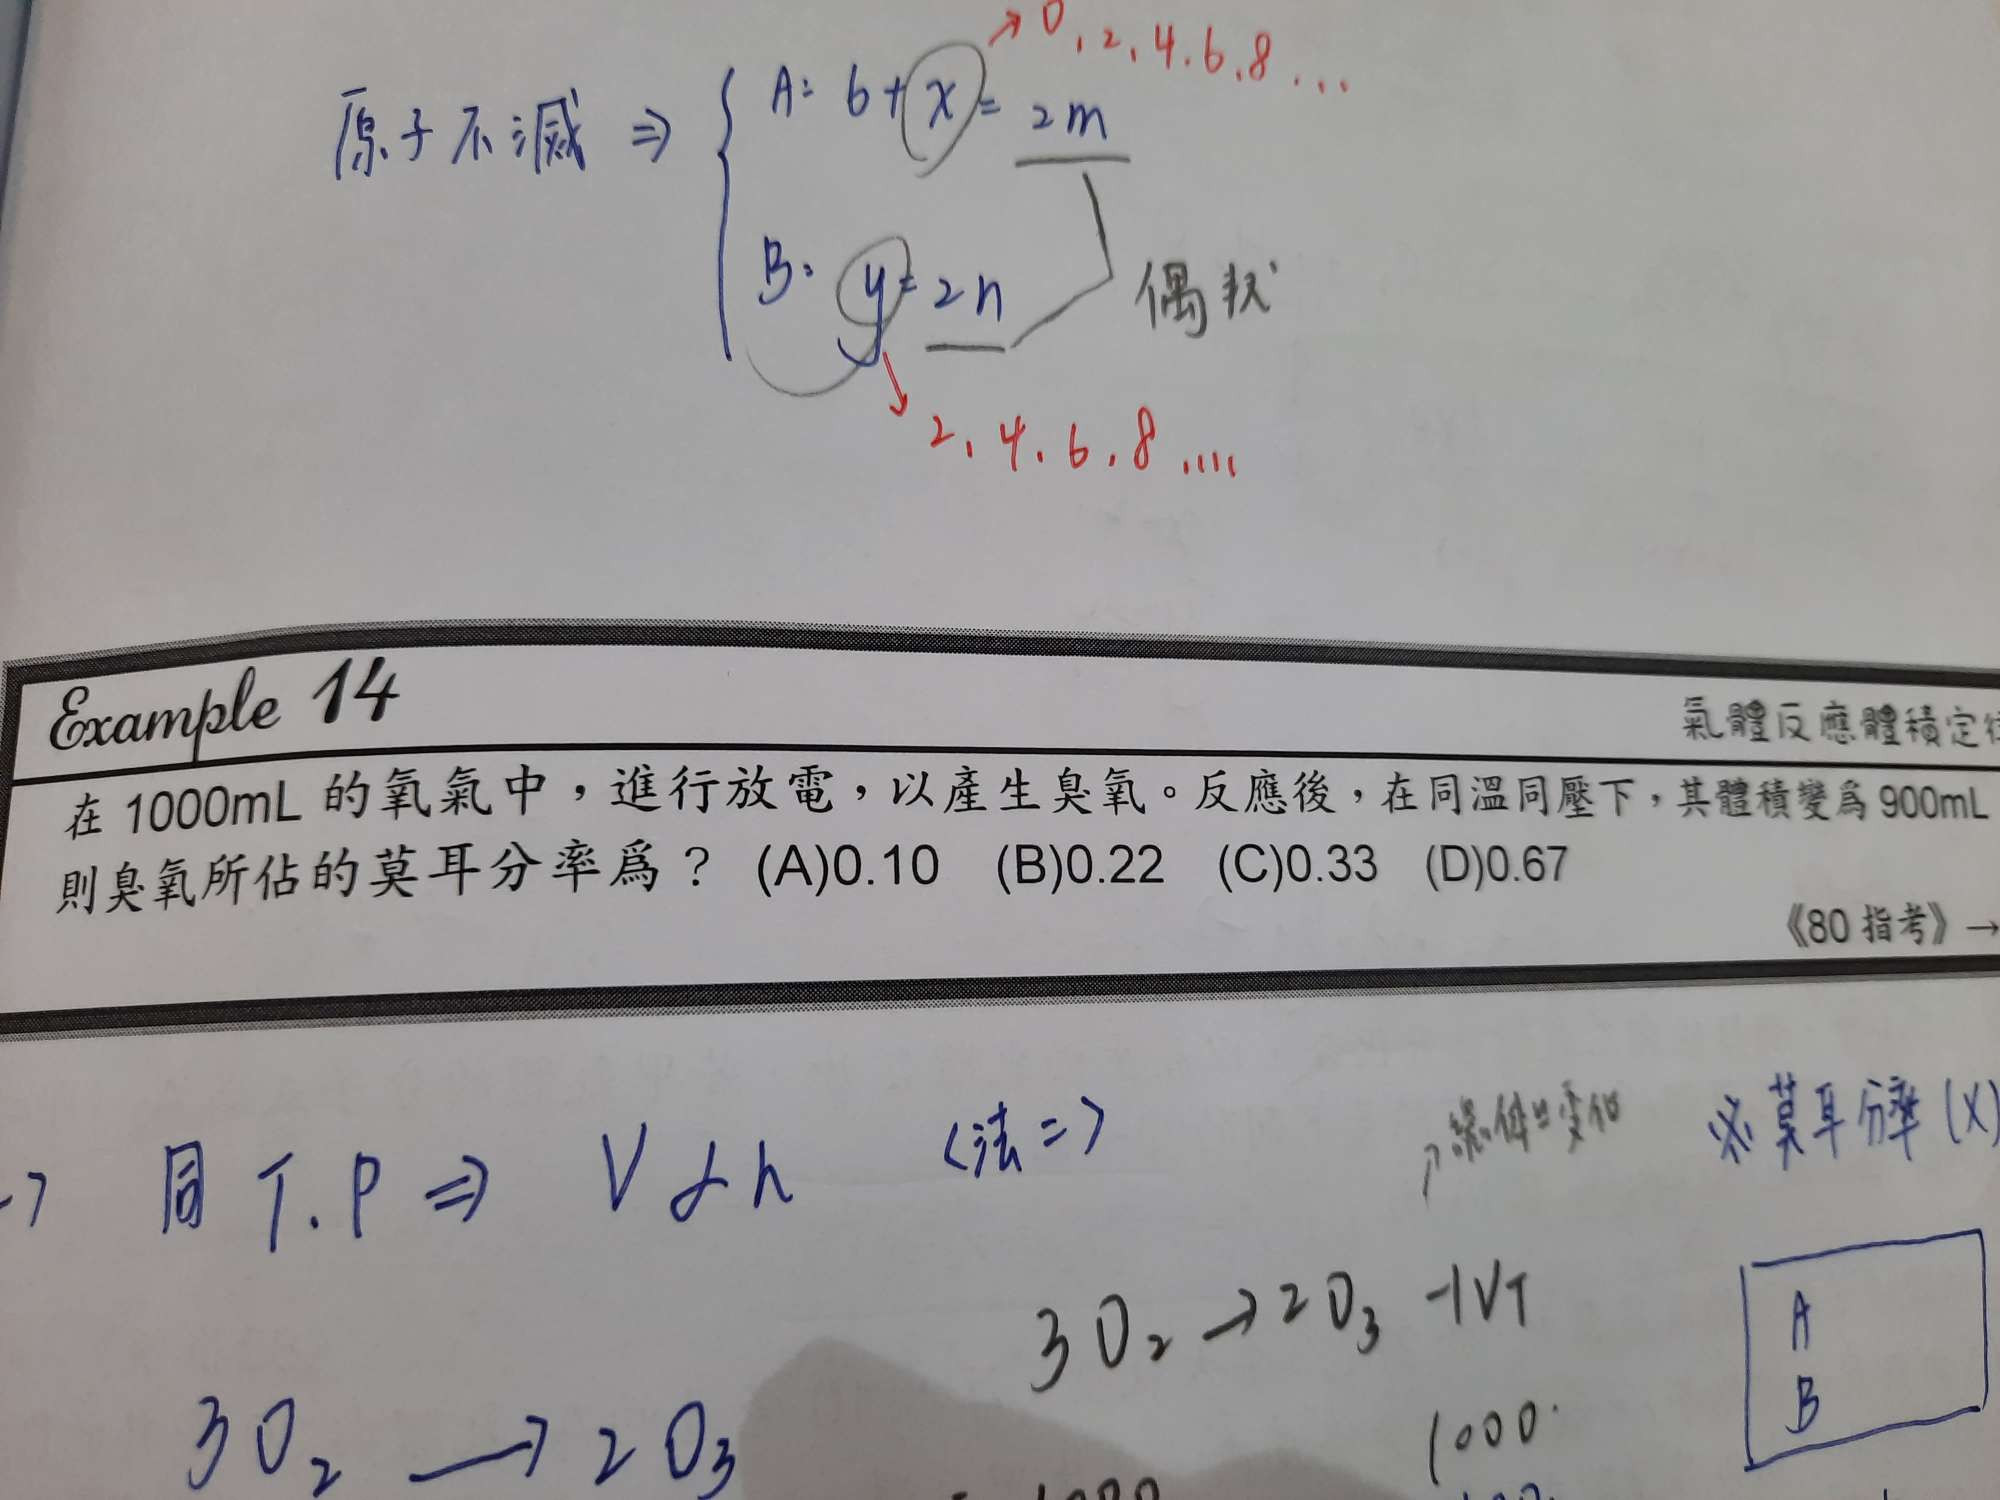 → 0, 2, 4, 6, 8 ...
原子不滅 ⇒ { A: 6 + x = 2m
B: y = 2n
偶數
2, 4, 6, 8 ....
Example 14
氣體反應體積定律
在 1000mL 的氧氣中，進行放電，以產生臭氧。反應後，在同溫同壓下，其體積變為 900mL
則臭氧所佔的莫耳分率為？ (A)0.10 (B)0.22 (C)0.33 (D)0.67
《80 指考》→
→ 同 T.P ⇒ V ∝ n <法二>
※莫耳分率 (X)
3O₂ → 2O₃ -1VT
A
B
3O₂ → 2O₃
1000
1000